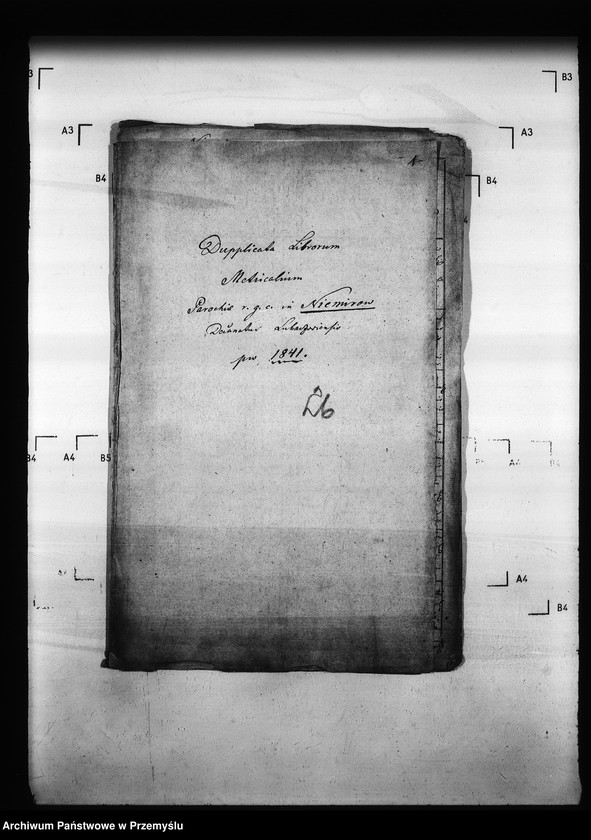 B3
A3
A3
B4
B4
Dupplicata Librorum
Metricalium
Parochie r. g. c. in Niemirow
Decanatus Lubaczoviensis
pro 1841.
B4
A4
B5
A4
A4
B4
Archiwum Państwowe w Przemyślu